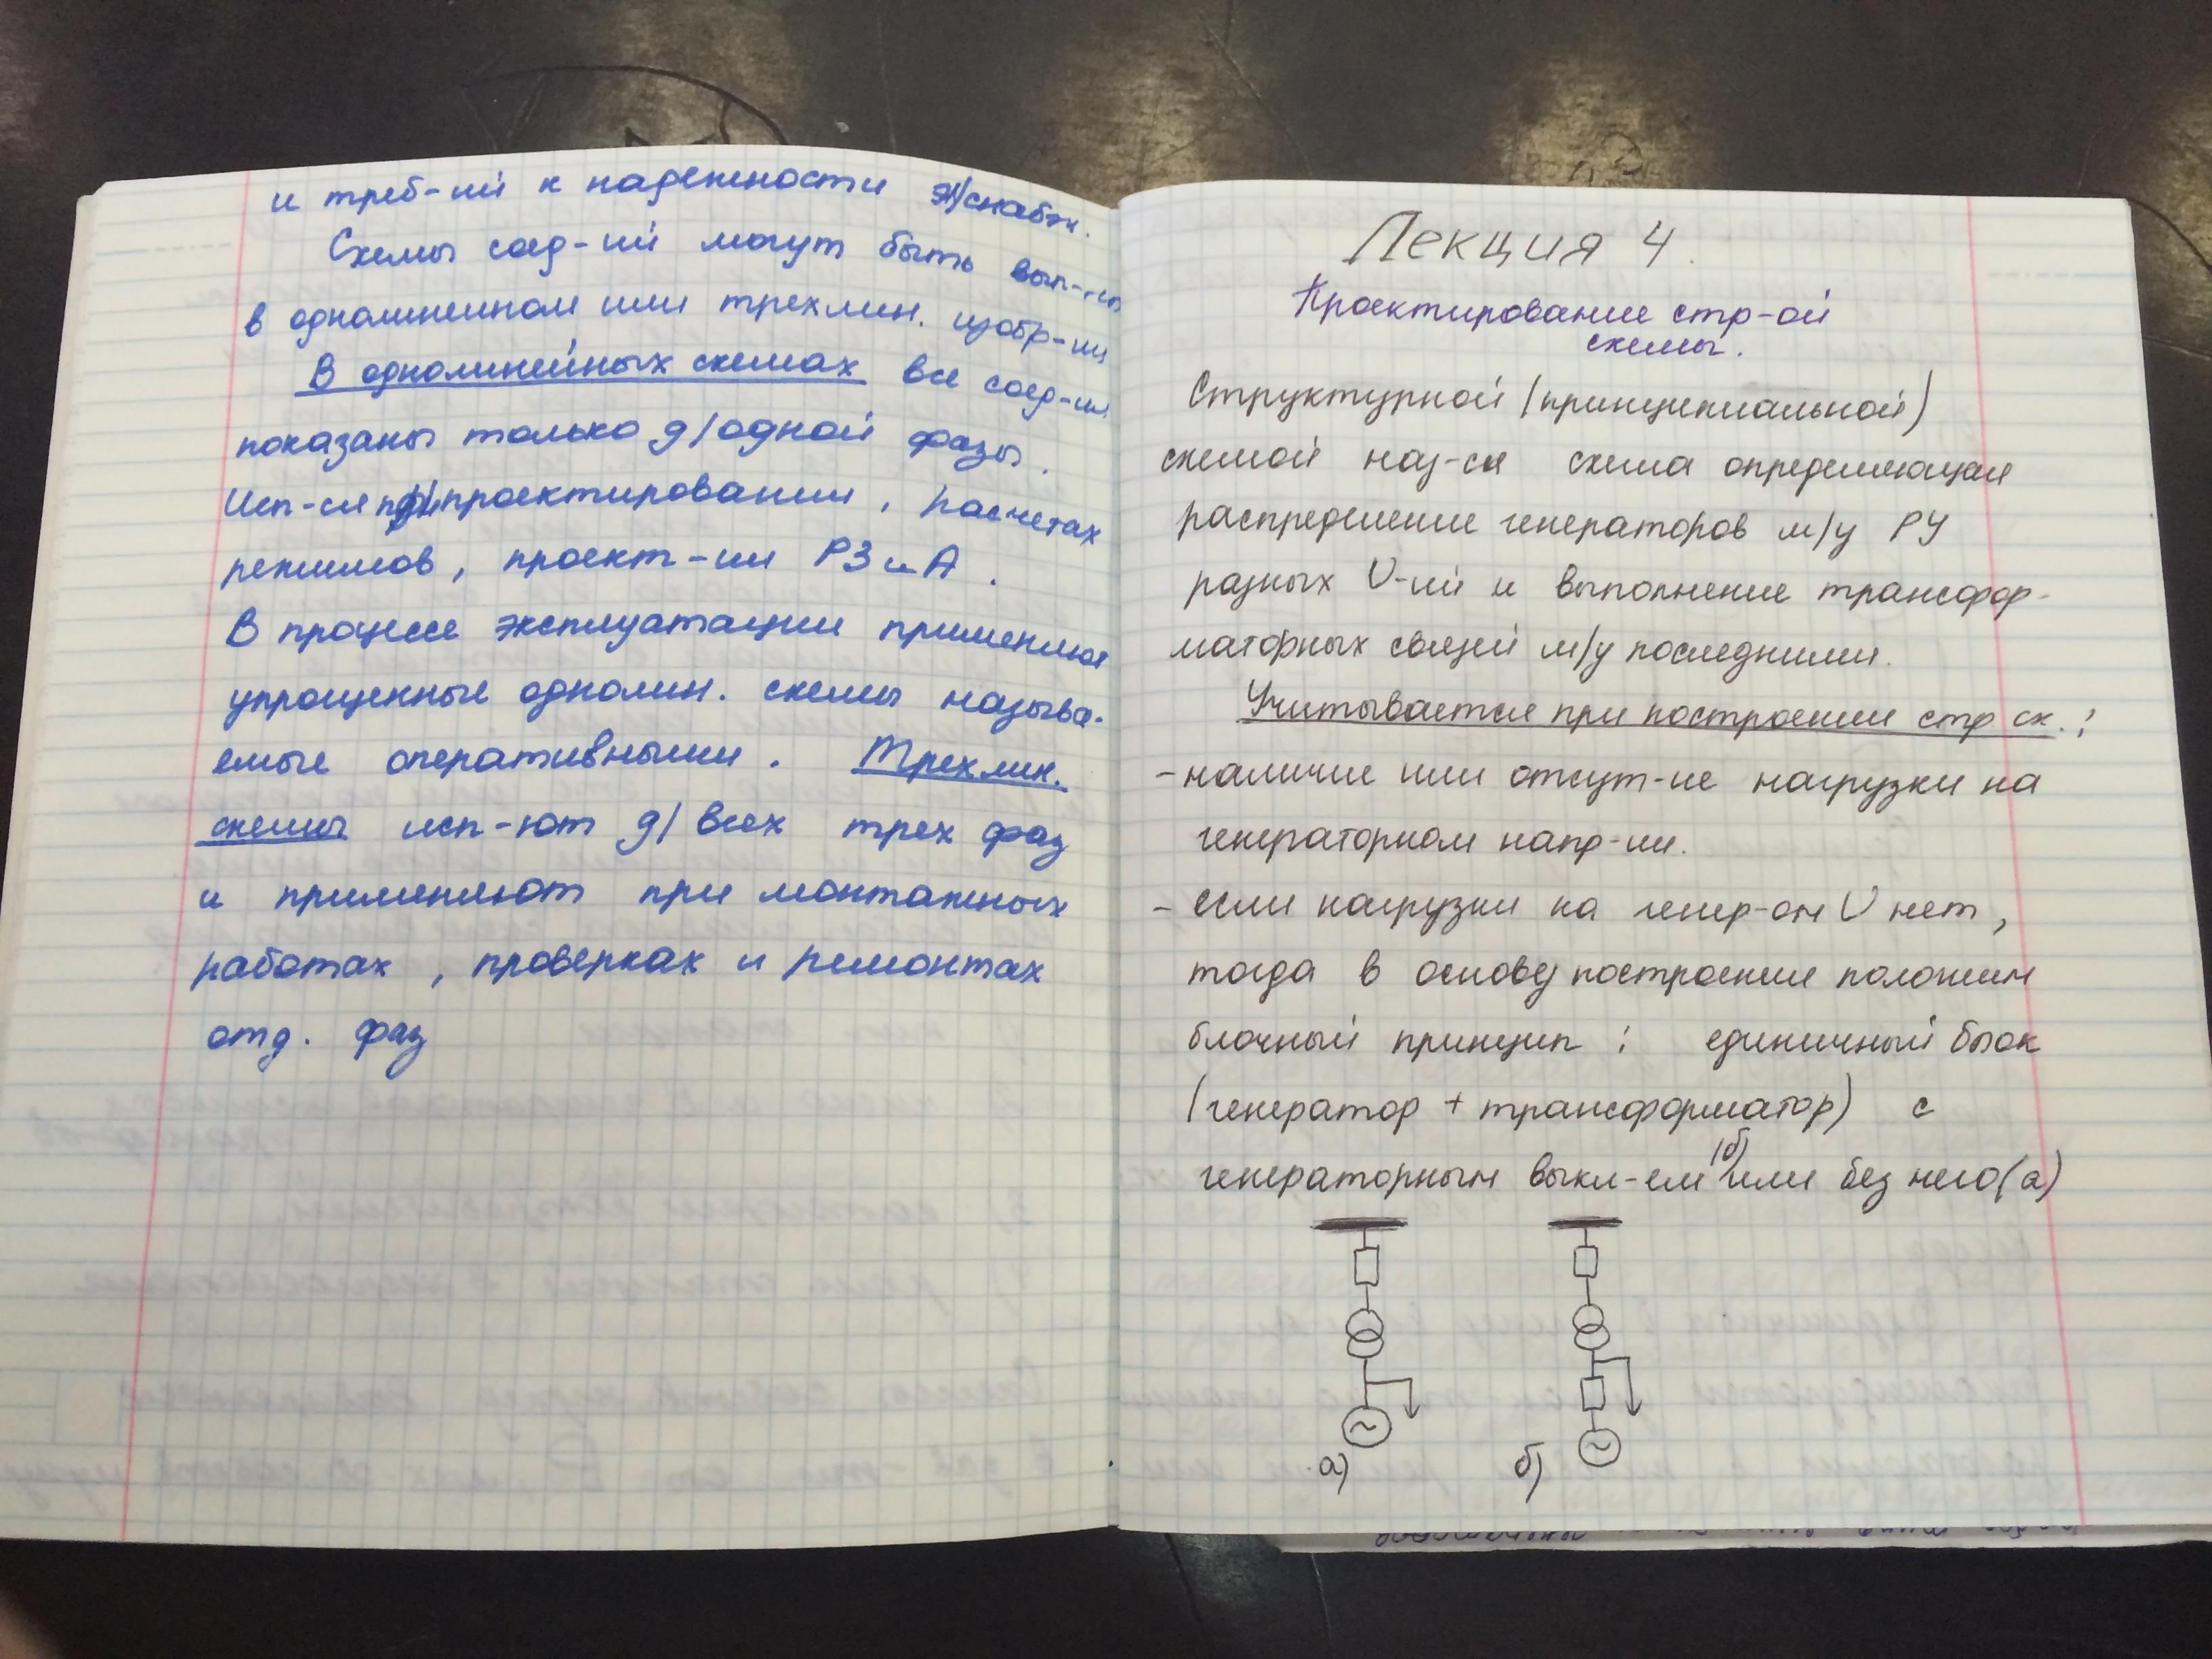 и треб-ий к надежности эл/снабж.
Схемы соед-ий могут быть вып-ны
в однолинейном или трехлин. изобр-ии
В однолинейных схемах все соед-ия
показаны только д/одной фазы.
Исп-ся при проектировании, расчетах
режимов, проект-ии РЗ и А.
В процессе эксплуатации применяют
упрощенные однолин. схемы называ-
емые оперативными. Трехлин.
схемы исп-ют д/ всех трех фаз
и применяют при монтажных
работах, проверках и ремонтах
отд. фаз
Лекция 4.
Проектирование стр-ой
схемы.
Структурной (принципиальной)
схемой наз-ся схема определяющая
распределение генераторов м/у РУ
разных U-ий и выполнение трансфор-
маторных связей м/у последними.
Учитывается при построении стр. сх.:
- наличие или отсут-ие нагрузки на
генераторном напр-ии.
- если нагрузки на генер-ом U нет,
тогда в основу построения положим
блочный принцип: единичный блок
(генератор + трансформатор) с
генераторным выкл-ем (б) или без него (а)
а) б)